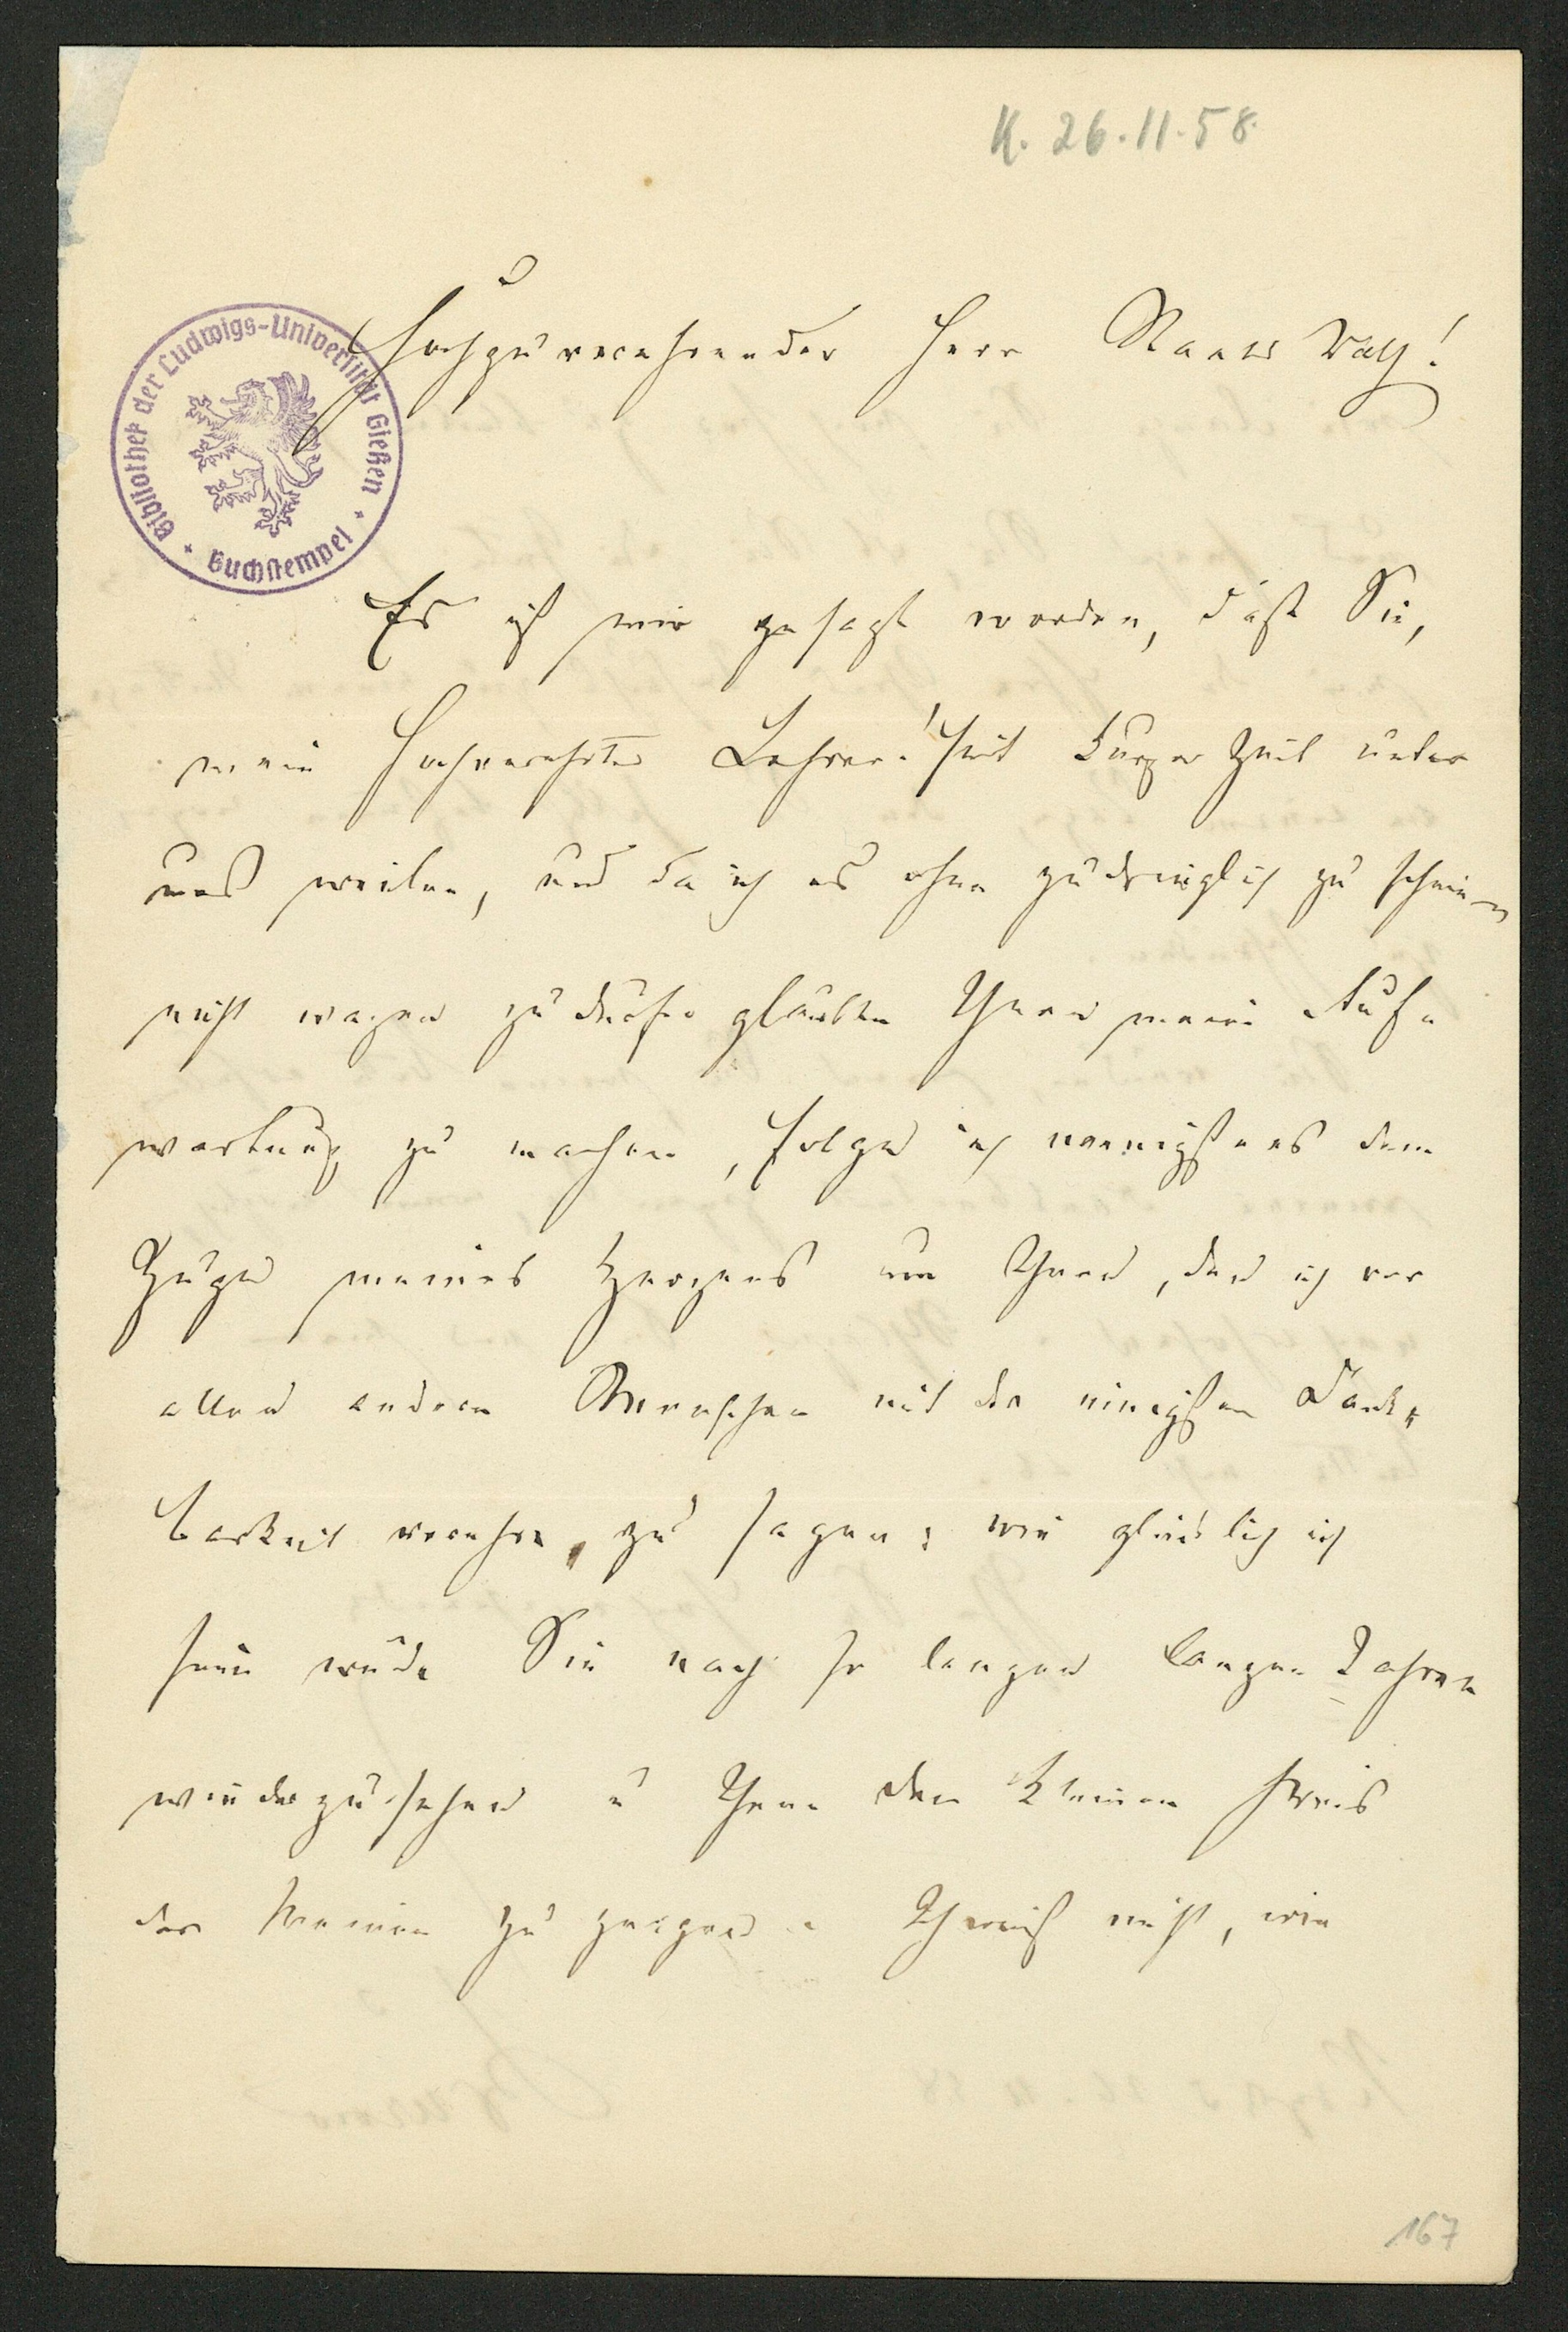 K. 26.11.58.
Hochzuverehrender Herr Staats Rath!
Bibliothek der Ludwigs-Universität Gießen
Buchstempel
Es ist mir gesagt worden, daß Sie,
mein Hochverehrter Lehrer! seit kurzer Zeit unter
uns weilen, und da ich es ohne zudringlich zu scheinen
nicht wagen zu dürfen glaubte Ihnen meine Auf-
wartung zu machen, folge ich wenigstens dem
Zuge meines Herzens um Ihnen, den ich vor
allen andern Menschen mit der innigsten Dank-
barkeit verehre, zu sagen: wie glücklich ich
sein würde Sie nach so langen langen Jahren
wiederzusehen u Ihnen den kleinen Kreis
der Meinen zu zeigen. Ich weiß nicht, wie
167